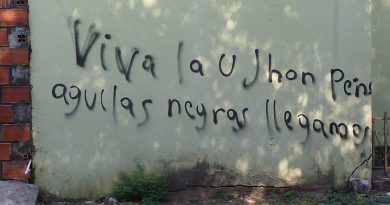 Viva la U Jhon Pein
aguilas negras llegamos